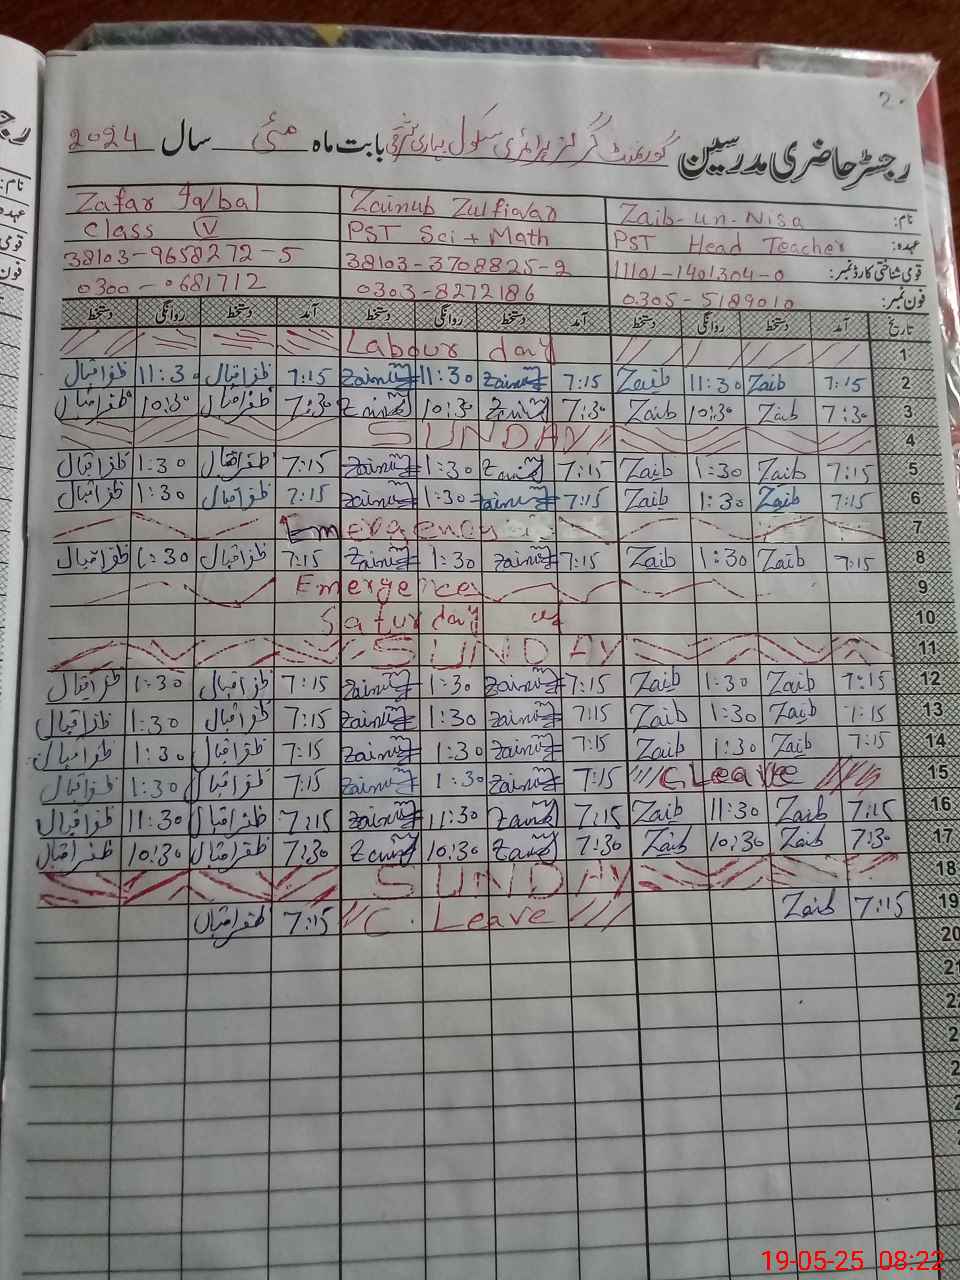 2.
رجسٹر حاضری مدرسین گورنمنٹ گرلز پرائمری سکول بابت ماہ مئی سال 2024
نام: Zaib-un-Nisa Zainub Zulfiqar Zafar Iqbal
عہدہ: PST Head Teacher PST Sci + Math Class V
قومی شناختی کارڈ نمبر: 11101-1401304-0 38103-3708825-2 38103-9658272-5
فون نمبر: 0305-5189010 0303-8272186 0300-0681712
تاریخ آمد دستخط روانگی دستخط آمد دستخط روانگی دستخط آمد دستخط روانگی دستخط
1 Labour day
2 7:15 Zaib 11:30 Zaib 7:15 Zainub 11:30 Zainub 7:15 ظفر اقبال 11:30 ظفر اقبال
3 7:30 Zaib 10:30 Zaib 7:30 Zainub 10:30 Zainub 7:30 ظفر اقبال 10:30 ظفر اقبال
4 SUNDAY
5 7:15 Zaib 1:30 Zaib 7:15 Zainub 1:30 Zainub 7:15 ظفر اقبال 1:30 ظفر اقبال
6 7:15 Zaib 1:30 Zaib 7:15 Zainub 1:30 Zainub 7:15 ظفر اقبال 1:30 ظفر اقبال
7 Emergency
8 7:15 Zaib 1:30 Zaib 7:15 Zainub 1:30 Zainub 7:15 ظفر اقبال 1:30 ظفر اقبال
9 Emergency
10 Saturday
11 SUNDAY
12 7:15 Zaib 1:30 Zaib 7:15 Zainub 1:30 Zainub 7:15 ظفر اقبال 1:30 ظفر اقبال
13 7:15 Zaib 1:30 Zaib 7:15 Zainub 1:30 Zainub 7:15 ظفر اقبال 1:30 ظفر اقبال
14 7:15 Zaib 1:30 Zaib 7:15 Zainub 1:30 Zainub 7:15 ظفر اقبال 1:30 ظفر اقبال
15 C Leave 7:15 Zainub 1:30 Zainub 7:15 ظفر اقبال 1:30 ظفر اقبال
16 7:15 Zaib 11:30 Zaib 7:15 Zainub 11:30 Zainub 7:15 ظفر اقبال 11:30 ظفر اقبال
17 7:30 Zaib 10:30 Zaib 7:30 Zainub 10:30 Zainub 7:30 ظفر اقبال 10:30 ظفر اقبال
18 SUNDAY
19 7:15 Zaib C. Leave 7:15 ظفر اقبال
20
21
22
19-05-25 08:22